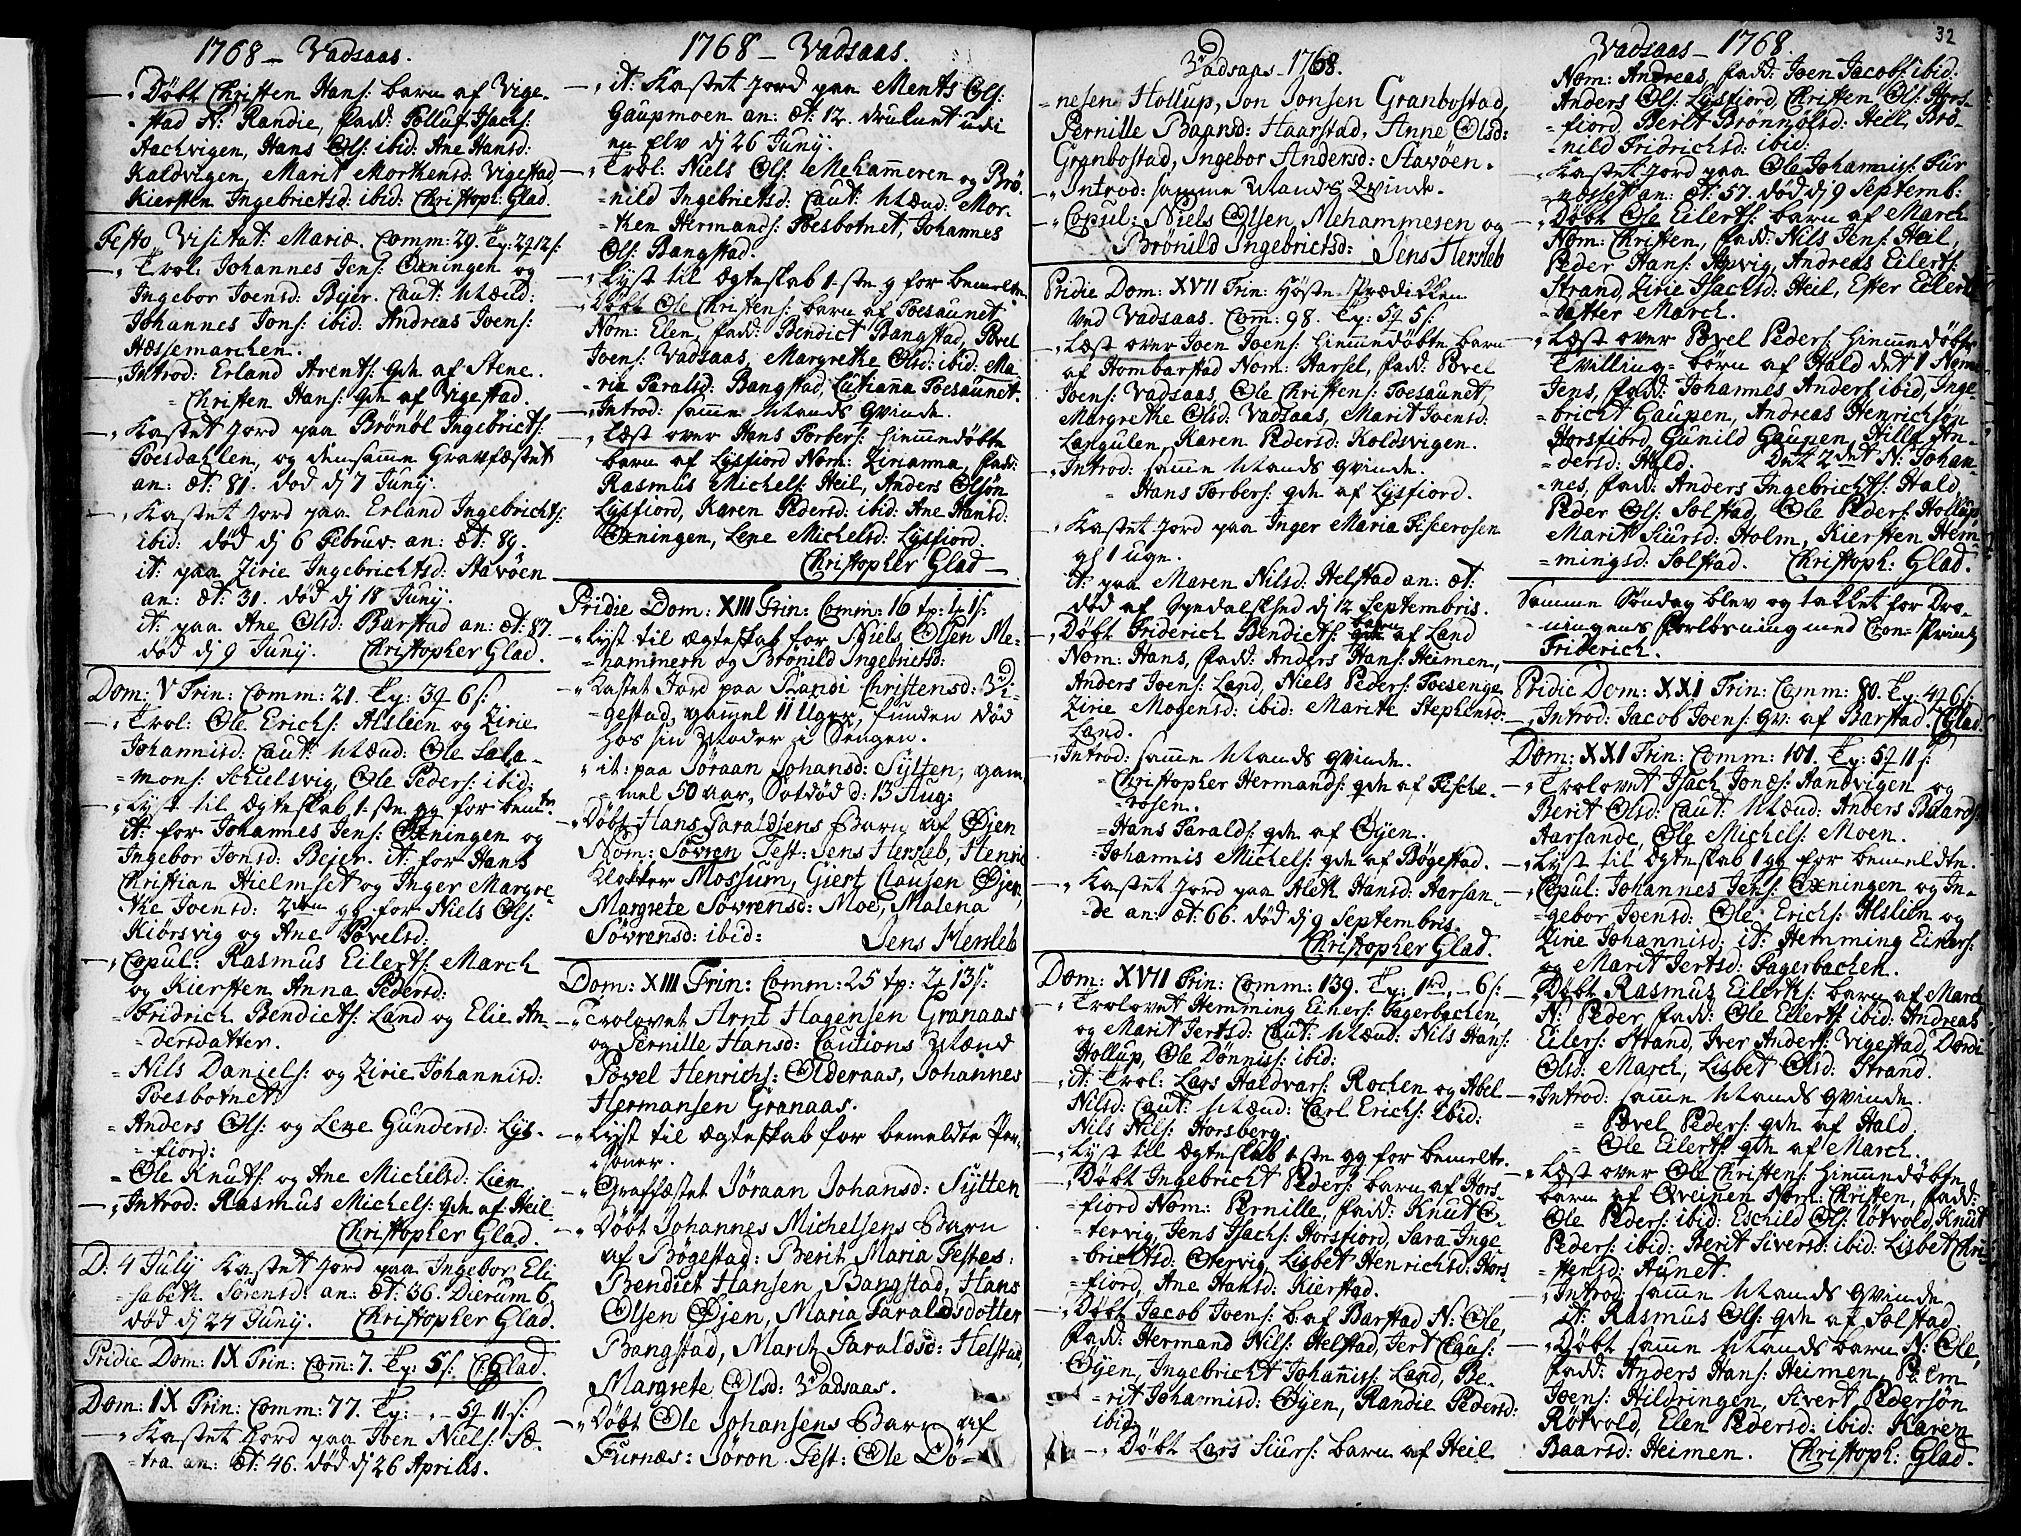 1768 – Vadsaas.
–, Døbt Christen Hans: barn af Vige-
-stad N: Randie, fadd: Tolluf Isachs:
Aachvigen, Hans Ols: ibid: Ane Hansd:
Kaldvigen, Marit Mortensd: Vigestad
Kiersten Ingebrictsd: ibid: Christoph: Glad.
Festo Visitat: Mariæ. Comm: 29.
–, Trol: Johannes Jens: Oxningen og
Ingebor Joensd: Bejer. Caut: Mænd:
Johannes Jons: ibid: Andreas Joens:
Hæssemarchen.
–, Introd: Erland Arents: qde af Stene.
= Christen Hans: qde af Vigestad.
–, Kastet Jord paa Brønøl Ingebricts:
Toesdahlen, og densamme Gravfæstet
an: æt: 81. død dj 7 Junij.
–, Kastet Jord paa Erland Ingebrichts:
ibid: død dj 6 Februv. an: æt: 89.
it: paa Zirie Ingebrichtsd: Stavøen
an: æt: 31. død dj 18 Junij.
it: paa Ane Olsd: Barstad an: æt: 87.
død dj 9 Junij. Christopher Glad.
Dom: V Trin: Comm: 21. Tp: 3q 6s:
–, Trol: Ole Erichs: Alslien og Zirie
Johannisd: Caut: Mænd: Ole Sala-
=mons: Schielsvig, Ole Peders: ibid:
–, Lyst til ægteskab 1-ste gg for bemte.
it: for Johannes Jens: Oxningen og
Ingebor Jonsd: Bejer. it: for Hans
Christian Hielmset og Inger Margre-
-the Joensd: 2den gg for Niels Ols:
Kiorsvig og Ane Povelsd:
–, Copul: Rasmus Eilerts: March
og Kiersten Anna Pedersd:
= Fridrich Bendicts: Land og Elie An-
=dersdatter.
= Nils Daniels: og Zirie Johannisd:
Toesbotnet.
= Anders Ols: og Lene Gundersd: Lys-
=fiord:
= Ole Knuts: og Ane Michelsd: Lien
–, Introd: Rasmus Michels: qde af Heil
Christopher Glad.
D: 4 July Kastet Jord paa Ingebor Eli-
=sabeth Sørensd: an: æt: 36. Dierum 6
død dj 24 Junij. Christopher Glad.
Pridie Dom: IX Trin: Com: 7. Tp: 5s: C: Glad.
Dom: IX Trin: Comm: 77. Tp: – 5q 11s:
–, Kastet Jord paa Joen Niels: Sæ-
=tra an: æt: 46. død dj 26 Aprilis.
1768 – Vadsaas.
–, it: Kastet Jord paa Ments Ols:
Gaupmoen an: æt: 12. druknet udi
en Elv dj 26 Junij.
–, Trol: Niels Ols: Mehammeren og Brø-
=nild Ingebrictsd: Caut: Mænd: Mor-
=ten Hermands: Toesbotnet, Johannes
Ols: Bangstad.
–, Lyst til ægteskab 1-ste g for bemelte.
–, Døbt Ole Christens: barn af Toesaunet
Nom: Elen, fadd: Bendict Bangstad, Povel
Joens: Vadsaas, Margrethe Olsd: ibid: Ma-
ria Taralsd: Bangstad, Lutiana Toesaunet.
–, Introd: samme Mands qvinde.
–, Læst over Hans Torbers: hiemmedøbte
barn af Lysfiord Nom: Zirianna, fadd:
Rasmus Michels: Heil, Anders Olsøn
Lysfiord, Karen Pedersd: ibid: Ane Hansd:
Oxningen, Lene Michelsd: Lysfiord.
Christopher Glad –
Pridie Dom: XIII Trin: Comm: 16 tp: 1q 1s:
–, Lyst til ægteskab for Niels Olsen Me-
=hammern og Brønild Ingebrictsd:
–, Kastet Jord paa Brandi Christensd: Vi-
=gestad, gammel 11 Uger, funden død
hos sin Moder i Sengen.
–, it: paa Jøraan Johansd: Sylten, gam-
=mel 50 aar, Sotdød d: 13 Aug:
–, Døbt Hans Taraldsens Barn af Øjen
Nom: Søvren Test: Jens Hersleb, Henric
Klokker Mossum, Giert Clausen Øjen,
Margrete Søvrensd: Moe, Malena
Søvrensd: ibid: Jens Hersleb
Dom: XIII Trin: Comm: 25 tp: 2q 13s:
–, Trolovet Arnt Hagensen Granaas
og Pernille Hansd: Cautions Mænd
Povel Henrichs: Olderaas, Johannes
Hermansen Granaas.
–, Lyst til ægteskab for bemeldte Per-
=soner.
–, Graffæstet Jøraan Johansd: Sylten
–, Døbt Johannes Michelsens Barn
af Bøgestad: Berit Maria Testes:
Bendict Hansen Bangstad, Hans
Olsen Øjen, Maria Taraldsdotter
Bangstad, Marit Taraldsd: Helstad,
Margrete Olsd: Vadsaas.
–, Døbt Ole Johansens Barn af
Furnæs: Jøron Test: Ole Dö-
Vadsaas – 1768.
=nesen Hollup, Jon Jonsen Granbostad,
Pernille Baansd: Haarstad, Anne Olsd:
Granbostad, Ingebor Andersd: Stavöen.
–, Introd: samme Mands Qvinde.
–, Copul: Niels Olsen Mehammesen og
Brönild Ingebrictsd: Jens Hersleb
Pridie Dom: XVII Trin: Høste Prædikken
ved Vadsaas. Com: 98. Tp: 5q 5s:
–, Læst over Joen Joens: hiemmedøbte barn
af Hombarstad Nom: Harsel, fadd: Povel
Joens: Vadsaas, Ole Christens: Toesaunet,
Margrethe Olsd: Vadsaas, Marit Joensd:
Langulen, Karen Pedersd: Koldsvigen.
–, Introd: samme Mands qvinde.
= Hans Torbers: qde af Lysfiord.
–, Kastet Jord paa Inger Maria Fiscerosen
gl 1 uge.
it: paa Maren Nilsd: Helstad an: æt:
død af Spedalskhed dj 12 Septembris.
–, Døbt Friderich Bendicts: barn af Land
Nom: Hans, fadd: Anders Hans: Heimen,
Anders Joens: Land, Niels Peders: Toesenge
Zirie Mogensd: ibid: Marite Stephensd:
Land.
–, Introd: samme Mands qvinde.
= Christopher Hermands: qde af Fische-
=rosen.
= Hans Taralds: qde af Øyen.
= Johannis Michels: qde af Bøgestad.
–, Kastet Jord paa Aleth Hansd: Aarsan-
=de an: æt: 66. død dj 9 Septembris.
Christopher Glad.
Dom: XVII Trin: Comm: 139. Tp: 1rd – 6s:
–, Trolovet Hemming Einers: Fagerbachen
og Marit Jertsd: Caut: Mænd: Nils Hans:
Hollup, Ole Dønnis: ibid:
–, it: Trol: Lars Haldvars: Rochen og Abel
Nilsd: Caut: Mænd: Carl Erichs: ibid:
Nils Nils: Horsberg.
–, Lyst til ægteskab 1-ste gg for bemelte.
–, Døbt Ingebricht Peders: barn af Hors-
=fiord Nom: Pernille, fadd: Knut O-
=tervig, Jens Isachs: Horsfiord, Sara Inge-
=brichtsd: Otervig, Lisbet Henrichsd: Hors-
=fiord, Ane Hansd: Kierstad.
–, Døbt Jacob Joens: b: af Barstad N: Ole,
fadd: Hermand Nils: Helstad, Jert Claus:
Øyen, Ingebricht Johanis: Land, Be-
=rit Johannisd: Øyen, Randie Pedersd:
ibid:
–, Døbt Lars Siurs: barn af Heil
32
Vadsaas – 1768.
Nom: Andreas, fadd: Joen Jacobs: ibid:
Anders Ols: Lysfiord, Christen Ols: Hors-
=fiord, Berit Brønnolsd: Heil, Brø-
=nild Fridrichsd: ibid:
–, Kastet Jord paa Ole Johannis: Fur
næsset an: æt: 57. død dj 9 Septemb:
–, Døbt Ole Eilerts: barn af March
Nom: Christen, fadd: Nils Jens: Heil,
Peder Hans: Apvig, Andreas Eilerts:
Strand, Zirie Isachsd: Heil, Ester Eilerts
datter March.
–, Læst over Povel Peders: hiemmedøbte
Tvilling-børn af Hald det 1 Nom:
Jens, fadd: Johannes Anders: ibid, Inge-
=bricht Gaupen, Andreas Henrichsøn
Horsfiord, Gunild Gaupen, Hille An-
=dersd: Hald. Det 2det N: Johan-
nes, fadd: Anders Ingebrichts: Hald,
Peder Ols: Solstad, Ole Peders: Hollup,
Marit Siursd: Holm, Kiersten Hem-
=mingsd: Solstad. Christoph: Glad.
Samme Søndag blev og takket for Dro-
=ningens Forløsning med Cron-Printz
Friderich.
Pridie Dom: XXI Trin: Comm: 80. Tp: 4q 6s:
–, Introd: Jacob Joens: qv: af Barstad. C: Glad.
Dom: XXI Trin: Comm: 101. Tp: 5q 11s:
–, Trolovet Isach Jones: Aandvigen og
Berit Olsd: Caut: Mænd: Anders Baards:
Aarsande, Ole Michels: Moen.
–, Lyst til ægteskab 1 gg for bemeldte.
–, Copul: Johannes Jens: Oxningen og In-
=gebor Joensd: Ole Erichs: Alslien og
Zirie Johannisd: it: Hemming Einers:
og Marit Jertsd: Fagerbachen.
–, Døbt Rasmus Eilerts: barn af March
N: Peder fadd: Ole Eilerts: ibid: Andreas
Eilers: Strand, Iver Anders: Vigestad, Dordi
Olsd: March, Lisbet Olsd: Strand.
–, Introd: samme Mands qvinde.
= Povel Peders: qde af Hald.
= Ole Eilerts: qde af March.
–, Læst over Ole Christens: hiemmedøbte
barn af Qveinen Nom: Christen, fadd:
Ole Peders: ibid: Eschild Ols: Røtvold, Knut
Peders: ibid: Berit Siversd: ibid: Lisbet Chri-
=stensd: Aunet.
–, Introd: samme Mands qvinde
it: Rasmus Ols: qde af Solstad.
–, Døbt samme Mands barn N: Ole,
fadd: Anders Hans: Heimen, Palm
Joens: Hildringen, Sivert Pedersøn
Røtvold, Elen Pedersd: ibid: Karen
Baarsd: Heimen. Christoph: Glad.